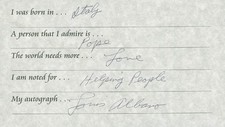 I was born in . . . Italy
A person that I admire is . . .
Pope
The world needs more . . . Love
I am noted for . . . Helping People
My autograph . . . Louis Albano